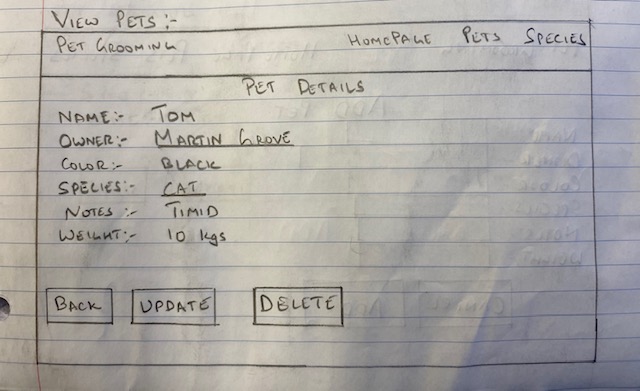 VIEW PETS :-
PET GROOMING HOMEPAGE PETS SPECIES
PET DETAILS
NAME:- TOM
OWNER:- MARTIN GROVE
COLOR:- BLACK
SPECIES:- CAT
NOTES :- TIMID
WEIGHT:- 10 kgs
BACK UPDATE DELETE